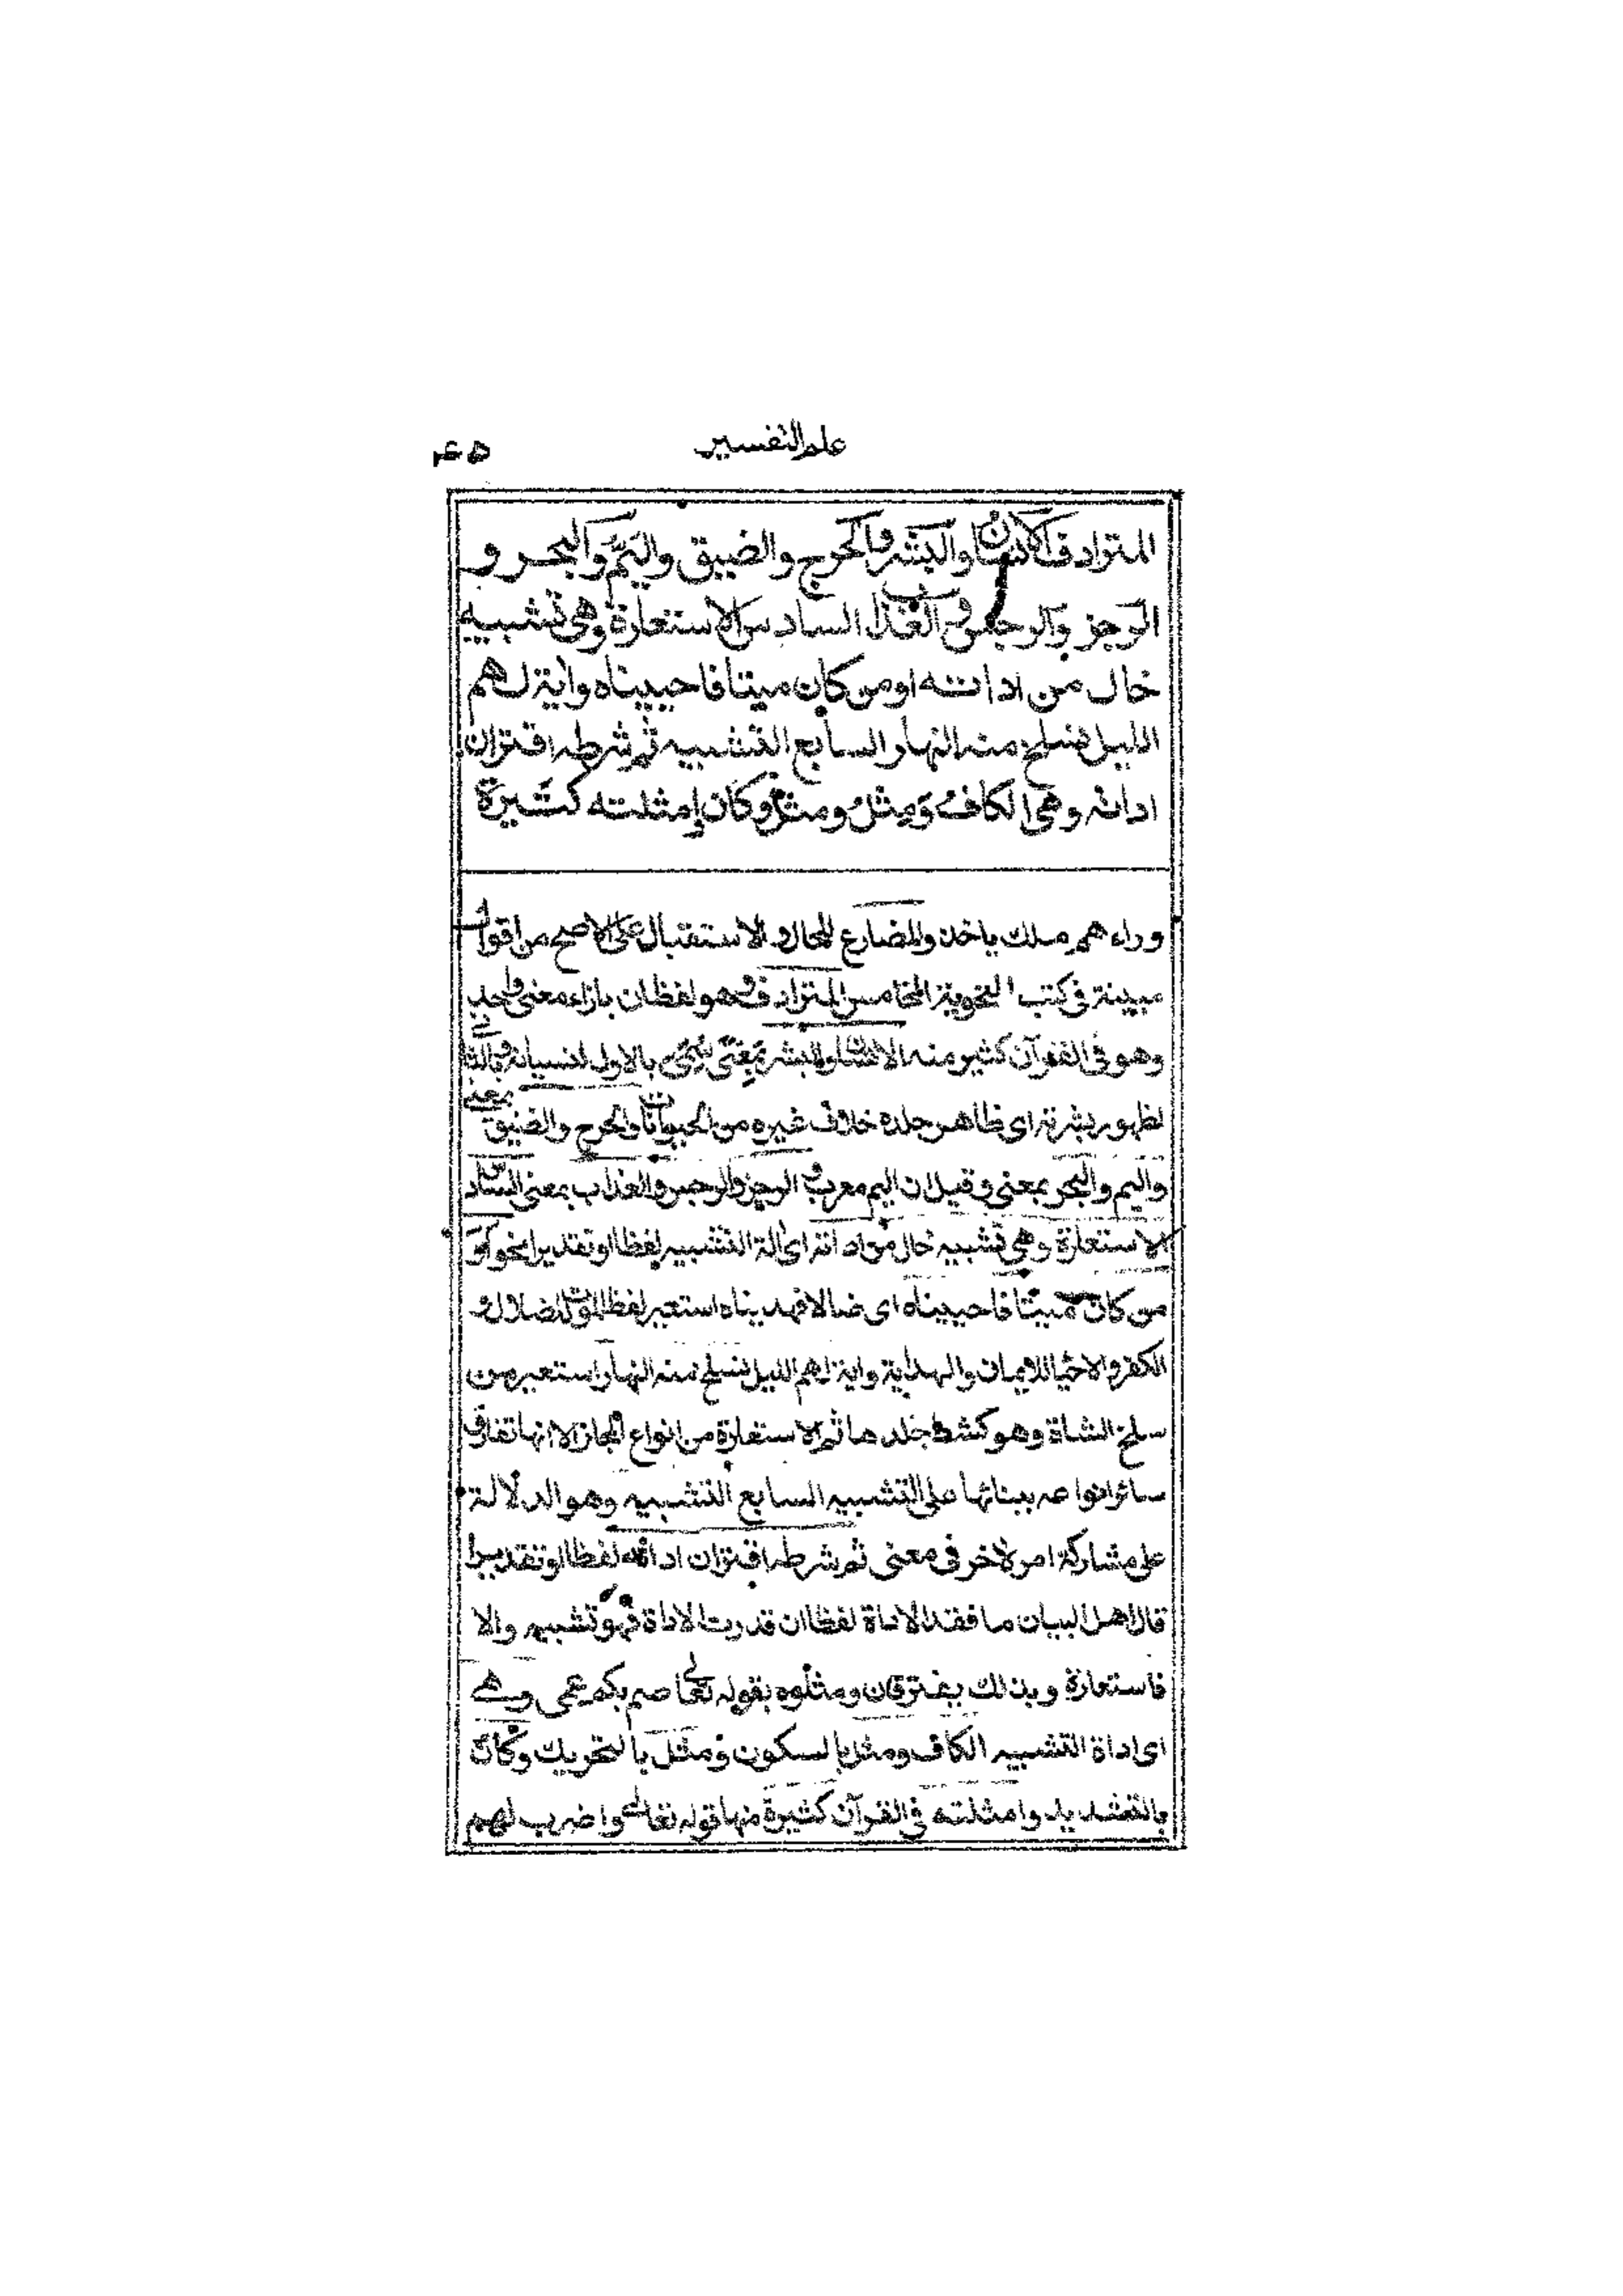 علم التفسير ٤٥
المترادف الانسان والبشر والحرج والضيق واليَمّ والبحر و
الرجز والرجس والعذاب السادس الاستعارة وهى تشبيه
خال من اداته اومن كان ميتا فاحييناه واية لهم
الليل نسلخ منه النهار السابع التشبيه ثم شرطه اقتران
اداته وهى الكافُ وَمِثْلُ ومثلُ وكَانَ امثلته كثيرة
وراءهم ملك ياخذ والمضارع للحال والاستقبال على الاصح من اقوال
مبينة فى كتب النحوية الخامس المترادف وهو لفظان بازاء معنى واحد
وهو فى القرآن كثير منه الانسان والبشر بمعنى سمى بالاول لنسيانه وبالثانى
لظهور بشرته اى ظاهر جلده خلاف غيره من الحيوانات والحرج والضيق بمعنى
واليم والبحر بمعنى وقيل ان اليم معرب والرجز والرجس والعذاب بمعنى السادس
الاستعارة وهى تشبيه خال من اداته اى الة التشبيه لفظا او تقديرا نحو او
من كان ميتا فاحييناه اى ضالا فهديناه استعير لفظ الموت للضلال و
الكفر والاحيا للايمان والهداية واية لهم الليل نسلخ منه النهار استعير من
سلخ الشاة وهو كشط جلدها ثم الاستعارة من انواع المجاز الا انها تفارق
سائر انواعه ببنائها على التشبيه السابع التشبيه وهو الدلالة
على مشاركة امر لاخر فى معنى ثم شرطه اقتران اداته لفظا او تقديرا
قال اهل البيان ما فقد الاداة لفظا ان قدرت الاداة فهو تشبيه والا
فاستعارة وبذلك يفترقان ومثلوه بقوله تعالى صم بكم عمى وهى
اى اداة التشبيه الكاف ومثل بالسكون ومثل بالتحريك وكانّ
بالتشديد وامثلته فى القرآن كثيرة منها قوله تعالى واضرب لهم